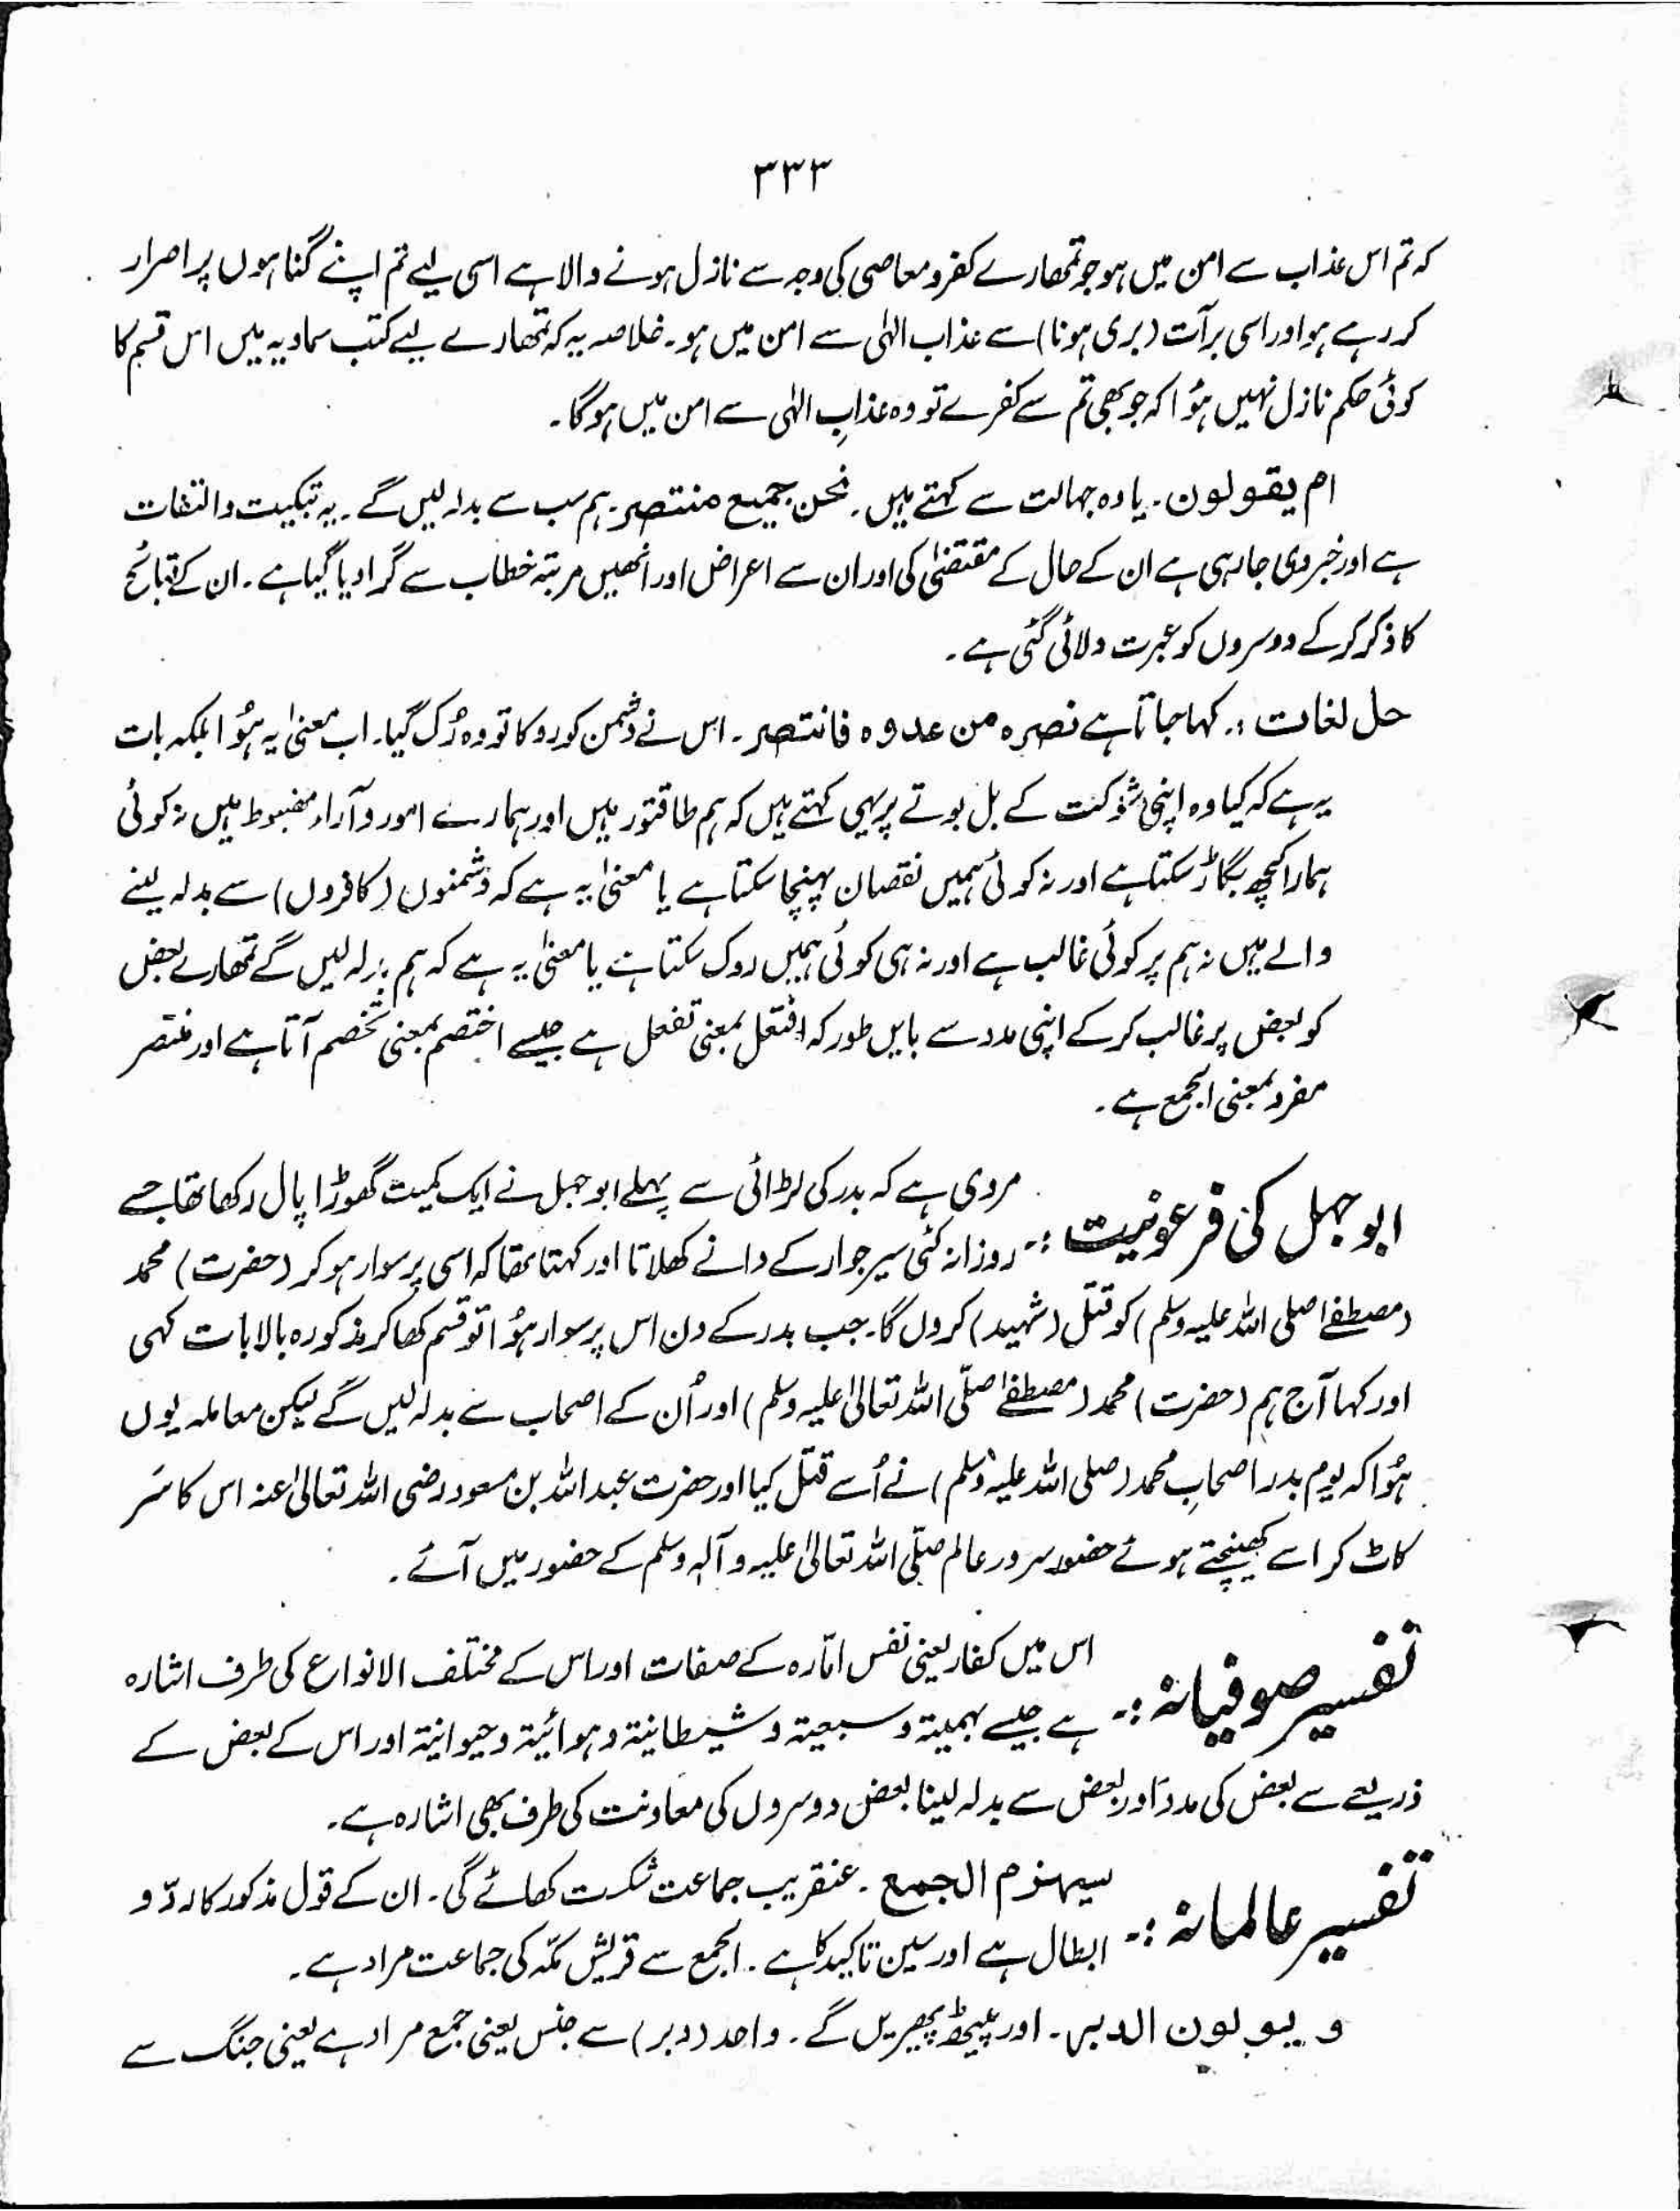 ۳۳۳
کہ تم اس عذاب سے امن میں ہو جو تمھارے کفر و معاصی کی وجہ سے نازل ہونے والا ہے اسی لیے تم اپنے گناہوں پر اصرار
کر رہے ہو اور اسی برآت (بری ہونا) سے عذاب الٰہی سے امن میں ہو۔ خلاصہ یہ کہ تمھارے لیے کتب سماویہ میں اس قسم کا
کوئی حکم نازل نہیں ہُوا کہ جو بھی تم سے کفر کرے تو وہ عذابِ الٰہی سے امن میں ہوگا۔
ام یقولون۔ یا وہ جہالت سے کہتے ہیں۔ نحن جمیع منتصر۔ ہم سب سے بدلہ لیں گے۔ یہ تبکیت والتفات
ہے اور خبر دی جا رہی ہے ان کے حال کے مقتضیٰ کی اور ان سے اعراض اور انھیں مرتبۂ خطاب سے گرا دیا گیا ہے۔ ان کے قبائح
کا ذکر کرکے دوسروں کو عبرت دلائی گئی ہے۔
حل لغات :۔ کہا جاتا ہے نصرہ من عدوہ فانتصر۔ اس نے دشمن کو روکا تو وہ رُک گیا۔ اب معنیٰ یہ ہُوا بلکہ بات
یہ ہے کہ کیا وہ اپنی شوکت کے بل بوتے پر یہی کہتے ہیں کہ ہم طاقتور ہیں اور ہمارے امور و آراء مضبوط ہیں نہ کوئی
ہمارا کچھ بگاڑ سکتا ہے اور نہ کوئی ہمیں نقصان پہنچا سکتا ہے یا معنیٰ یہ ہے کہ دشمنوں (کافروں) سے بدلہ لینے
والے ہیں نہ ہم پر کوئی غالب ہے اور نہ ہی کوئی ہمیں روک سکتا ہے یا معنیٰ یہ ہے کہ ہم بدلہ لیں گے تمھارے بعض
کو بعض پر غالب کرکے اپنی مدد سے بایں طور کہ افتعل بمعنی تفعل ہے جیسے اختصم بمعنی تخصم آتا ہے اور منتصر
مفرد بمعنی الجمع ہے۔
ابوجہل کی فرعونیت :۔ مروی ہے کہ بدر کی لڑائی سے پہلے ابوجہل نے ایک کمیت گھوڑا پال رکھا تھا جسے
روزانہ کئی سیر جوار کے دانے کھلاتا اور کہتا تھا کہ اسی پر سوار ہو کر (حضرت) محمد
(مصطفےٰ صلی اللہ علیہ وسلم) کو قتل (شہید) کروں گا۔ جب بدر کے دن اس پر سوار ہُوا تو قسم کھا کر مذکورہ بالا بات کہی
اور کہا آج ہم (حضرت) محمد (مصطفےٰ صلّی اللہ تعالیٰ علیہ وسلم) اور اُن کے اصحاب سے بدلہ لیں گے لیکن معاملہ یوں
ہُوا کہ یوم بدر اصحابِ محمد (صلی اللہ علیہ وسلم) نے اُسے قتل کیا اور حضرت عبد اللہ بن مسعود رضی اللہ تعالیٰ عنہ اس کا سَر
کاٹ کر اسے کھینچتے ہوئے حضور سرور عالم صلّی اللہ تعالیٰ علیہ و آلہٖ وسلم کے حضور میں آئے۔
تفسیر صوفیانہ :۔ اس میں کفار یعنی نفس امّارہ کے صفات اور اس کے مختلف الانواع کی طرف اشارہ
ہے جیسے بہمیتہ و سبعیتہ و شیطانیتہ و ہوائیتہ و حیوانیتہ اور اس کے بعض کے
ذریعے سے بعض کی مدد اور بعض سے بدلہ لینا بعض دوسروں کی معاونت کی طرف بھی اشارہ ہے۔
تفسیر عالمانہ :۔ سیہزم الجمع۔ عنقریب جماعت شکست کھائے گی۔ ان کے قول مذکور کا ردّ و
ابطال ہے اور سین تاکید کا ہے۔ الجمع سے قریش مکّہ کی جماعت مراد ہے۔
و یولون الدبر۔ اور پیٹھ پھیریں گے۔ واحد (دبر) سے جنس یعنی جمع مراد ہے یعنی جنگ سے